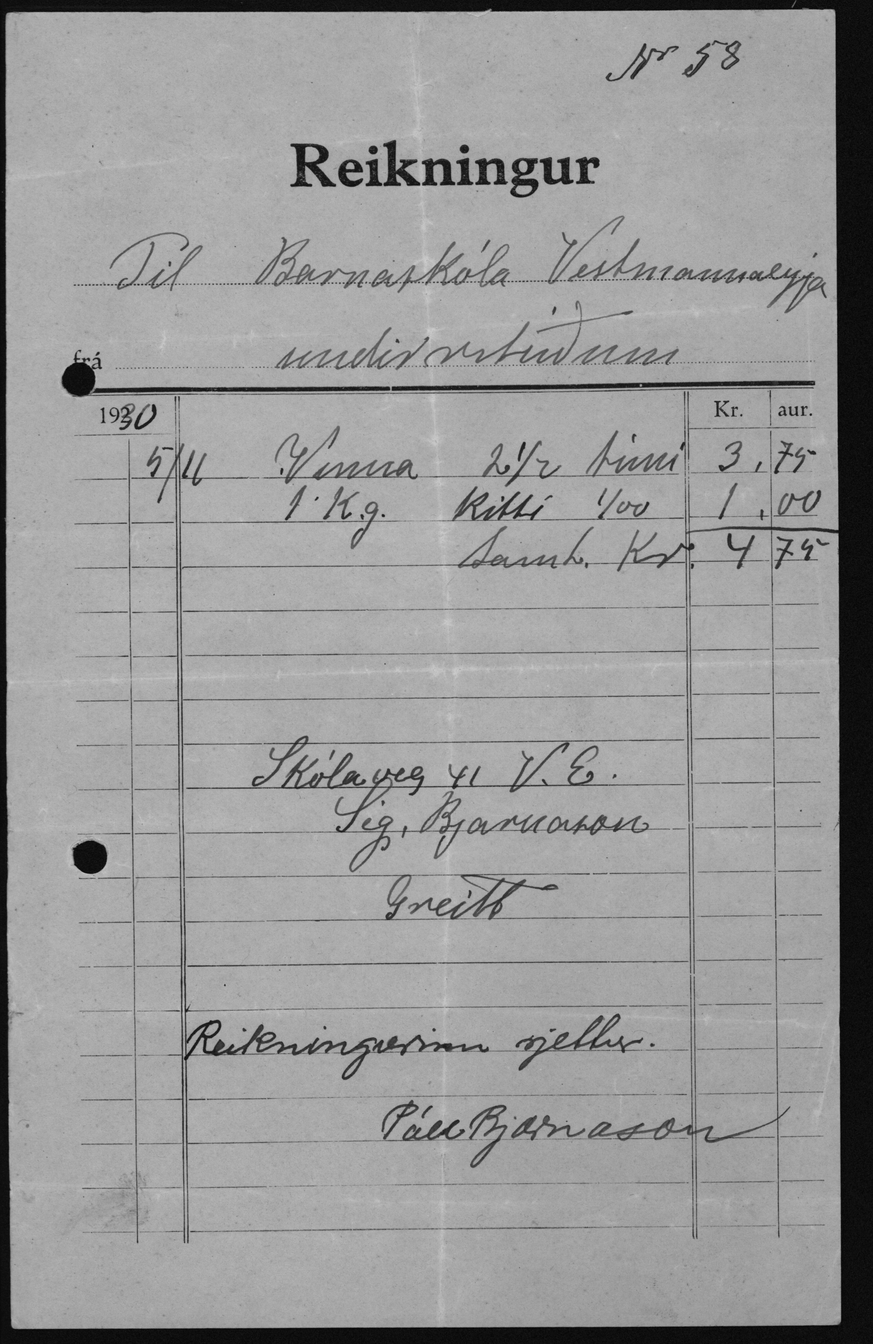 Nr 58
Reikningur
Til Barnaskóla Vestmannaeyja
frá undirrituðum
1930 Kr. aur.
5/11 Vinna 2 1/2 tími 3,75
1 Kg. Kitti 1/00 1,00
Samt. Kr. 4 75
Skólaveg 41 V.E.
Sig. Bjarnason
Greitt
Reikningurinn rjettur.
Páll Bjarnason